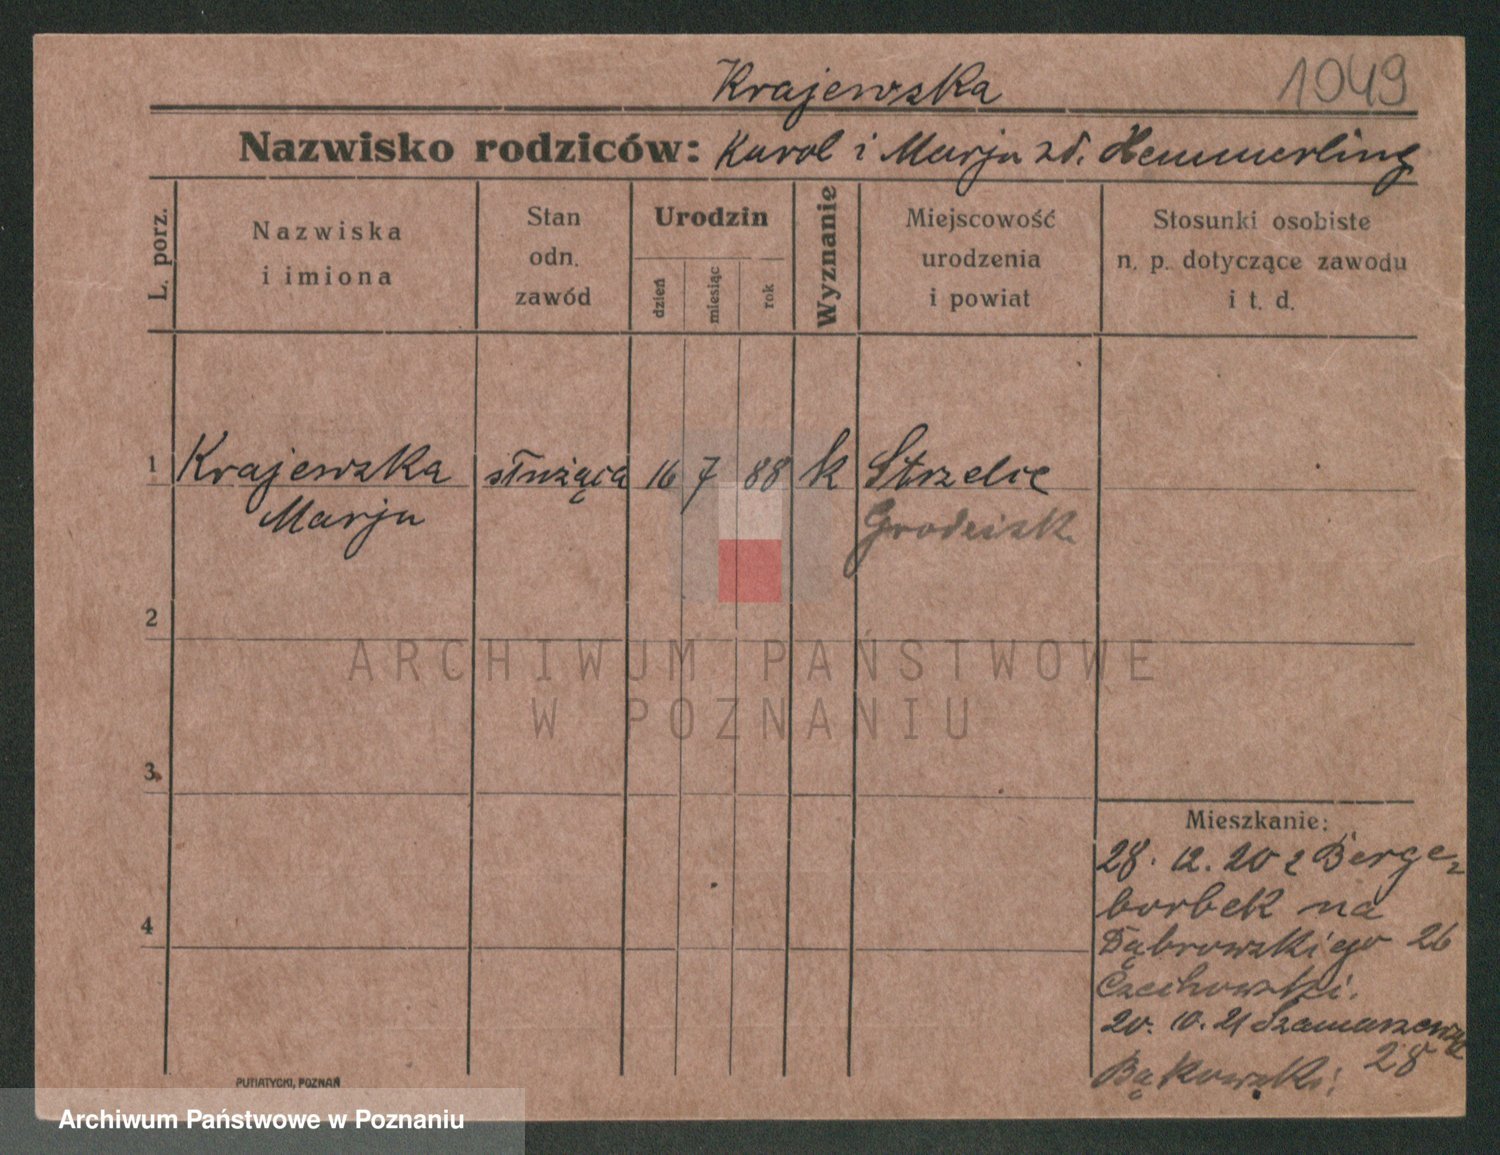 Krajewska
1049
Nazwisko rodziców: Karol i Marja zd. Hemmerling
L. porz.
Nazwiska
i imiona
Stan
odn.
zawód
Urodzin
dzień
miesiąc
rok
Wyznanie
Miejscowość
urodzenia
i powiat
Stosunki osobiste
n. p. dotyczące zawodu
i t. d.
1 Krajewska służąca 16 7 88 k Strzelce
Marja Grodzisk.
2
ARCHIWUM PAŃSTWOWE
W POZNANIU
3
Mieszkanie:
28. 12. 20 z Berge-
borbek na
4
Dąbrowskiego 26
Czechowski.
20. 10. 21 Szamarzewsk
28
Bąkowski.
PUTIATYCKI, POZNAŃ
Archiwum Państwowe w Poznaniu